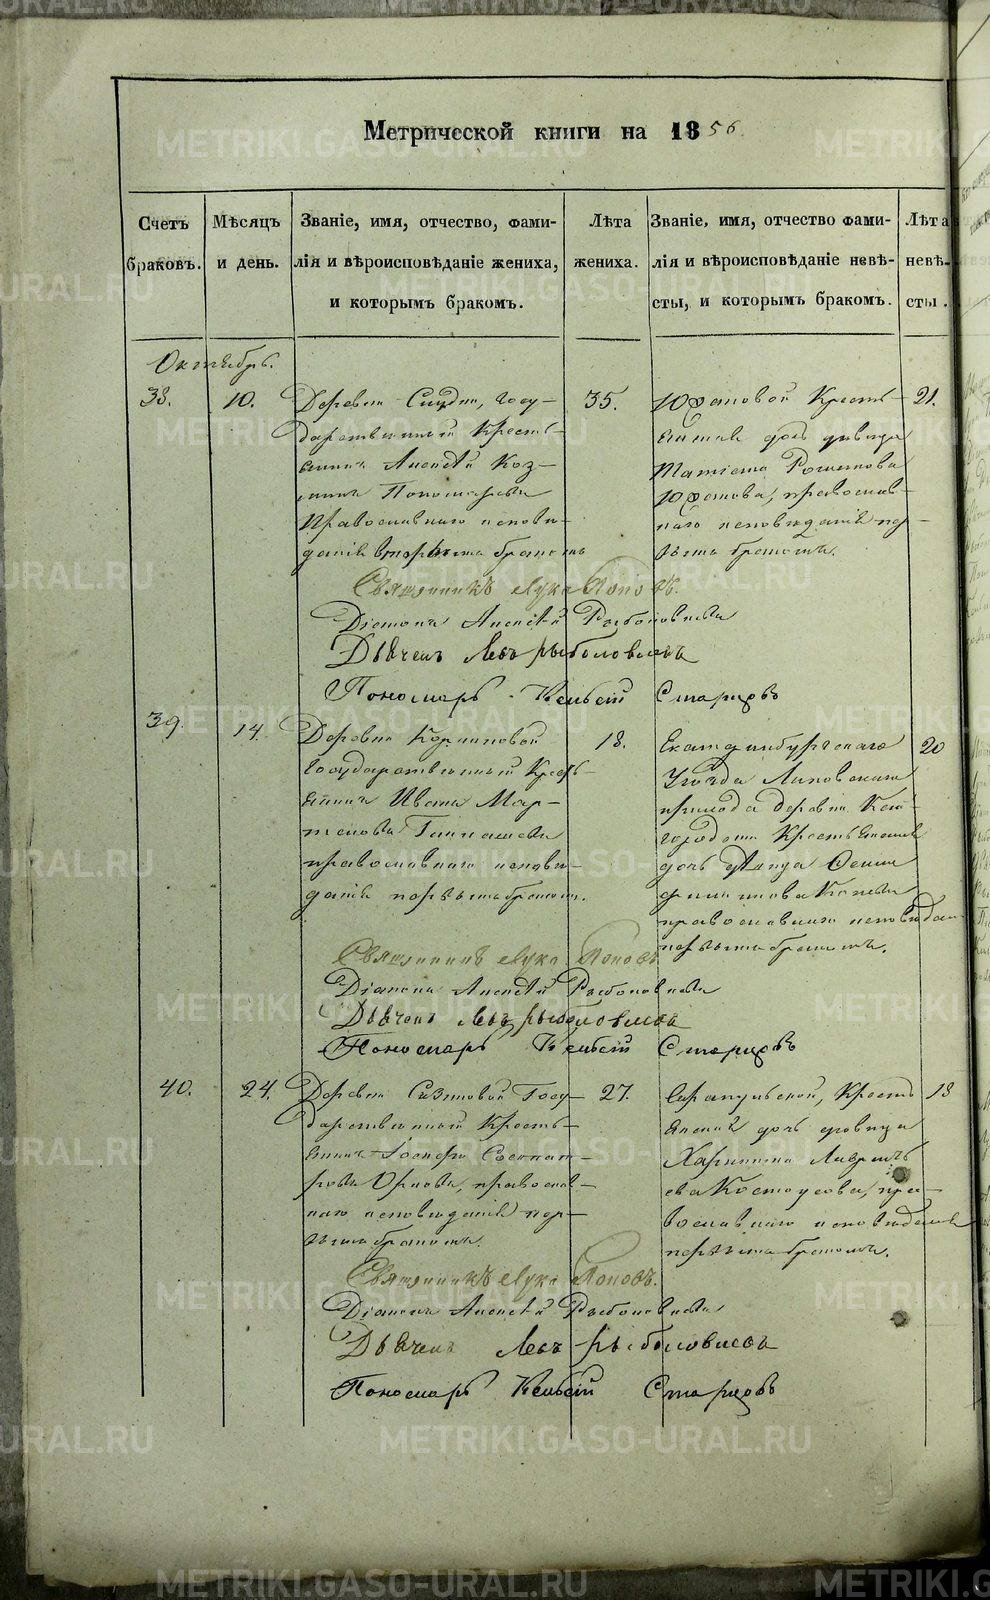 Метрической книги на 1856.
Счетъ браковъ.
Мѣсяцъ и день.
Званіе, имя, отчество, фами-
лія и вѣроисповѣданіе жениха,
и которымъ бракомъ.
Лѣта жениха.
Званіе, имя, отчество фами-
лія и вѣроисповѣданіе невѣ-
сты, и которымъ бракомъ.
Лѣта невѣ-
сты.
Октябрь.
38.
10.
Деревни Госу-
дарственный Кресть-
янинъ Алексѣй Коз-
минъ Пономаревъ
Православнаго исповѣ-
данія вторымъ бракомъ
35.
Юшановой Кресть-
янина дочь дѣвица
Татіана
православ-
наго исповѣданія пер-
вымъ бракомъ.
21.
Священникъ Лука Поповъ.
Діаконъ Алексѣй Рыболовлевъ
Дьячекъ Левъ Рыболовлевъ
Пономарь Старцовъ
39.
14.
Деревни
Государственный Кресть-
янинъ Иванъ Мар-
теновъ
православнаго исповѣ-
данія первымъ бракомъ.
18.
Екатеринбургскаго
Уѣзда Липовскаго
прихода деревни
Крестьянина
дочь дѣвица
православнаго исповѣдан
первымъ бракомъ.
20
Священникъ Лука Поповъ
Діаконъ Алексѣй Рыболовлевъ
Дьячекъ Левъ Рыболовлевъ
Пономарь Старцовъ
40.
24.
Деревни Госу-
дарственный Кресть-
янинъ Іосифъ Сосипат-
ровъ православ-
наго исповѣданія пер-
вымъ бракомъ.
27.
Кресть
янина дочь дѣвица
Харитина Лаврентъ
ева Костоусова, пра-
вославнаго исповѣданія
первымъ бракомъ.
18
Священникъ Лука Поповъ.
Діаконъ Алексѣй Рыболовлевъ
Дьячекъ Левъ Рыболовлевъ
Пономарь Старцовъ
METRIKI.GASO-URAL.RU